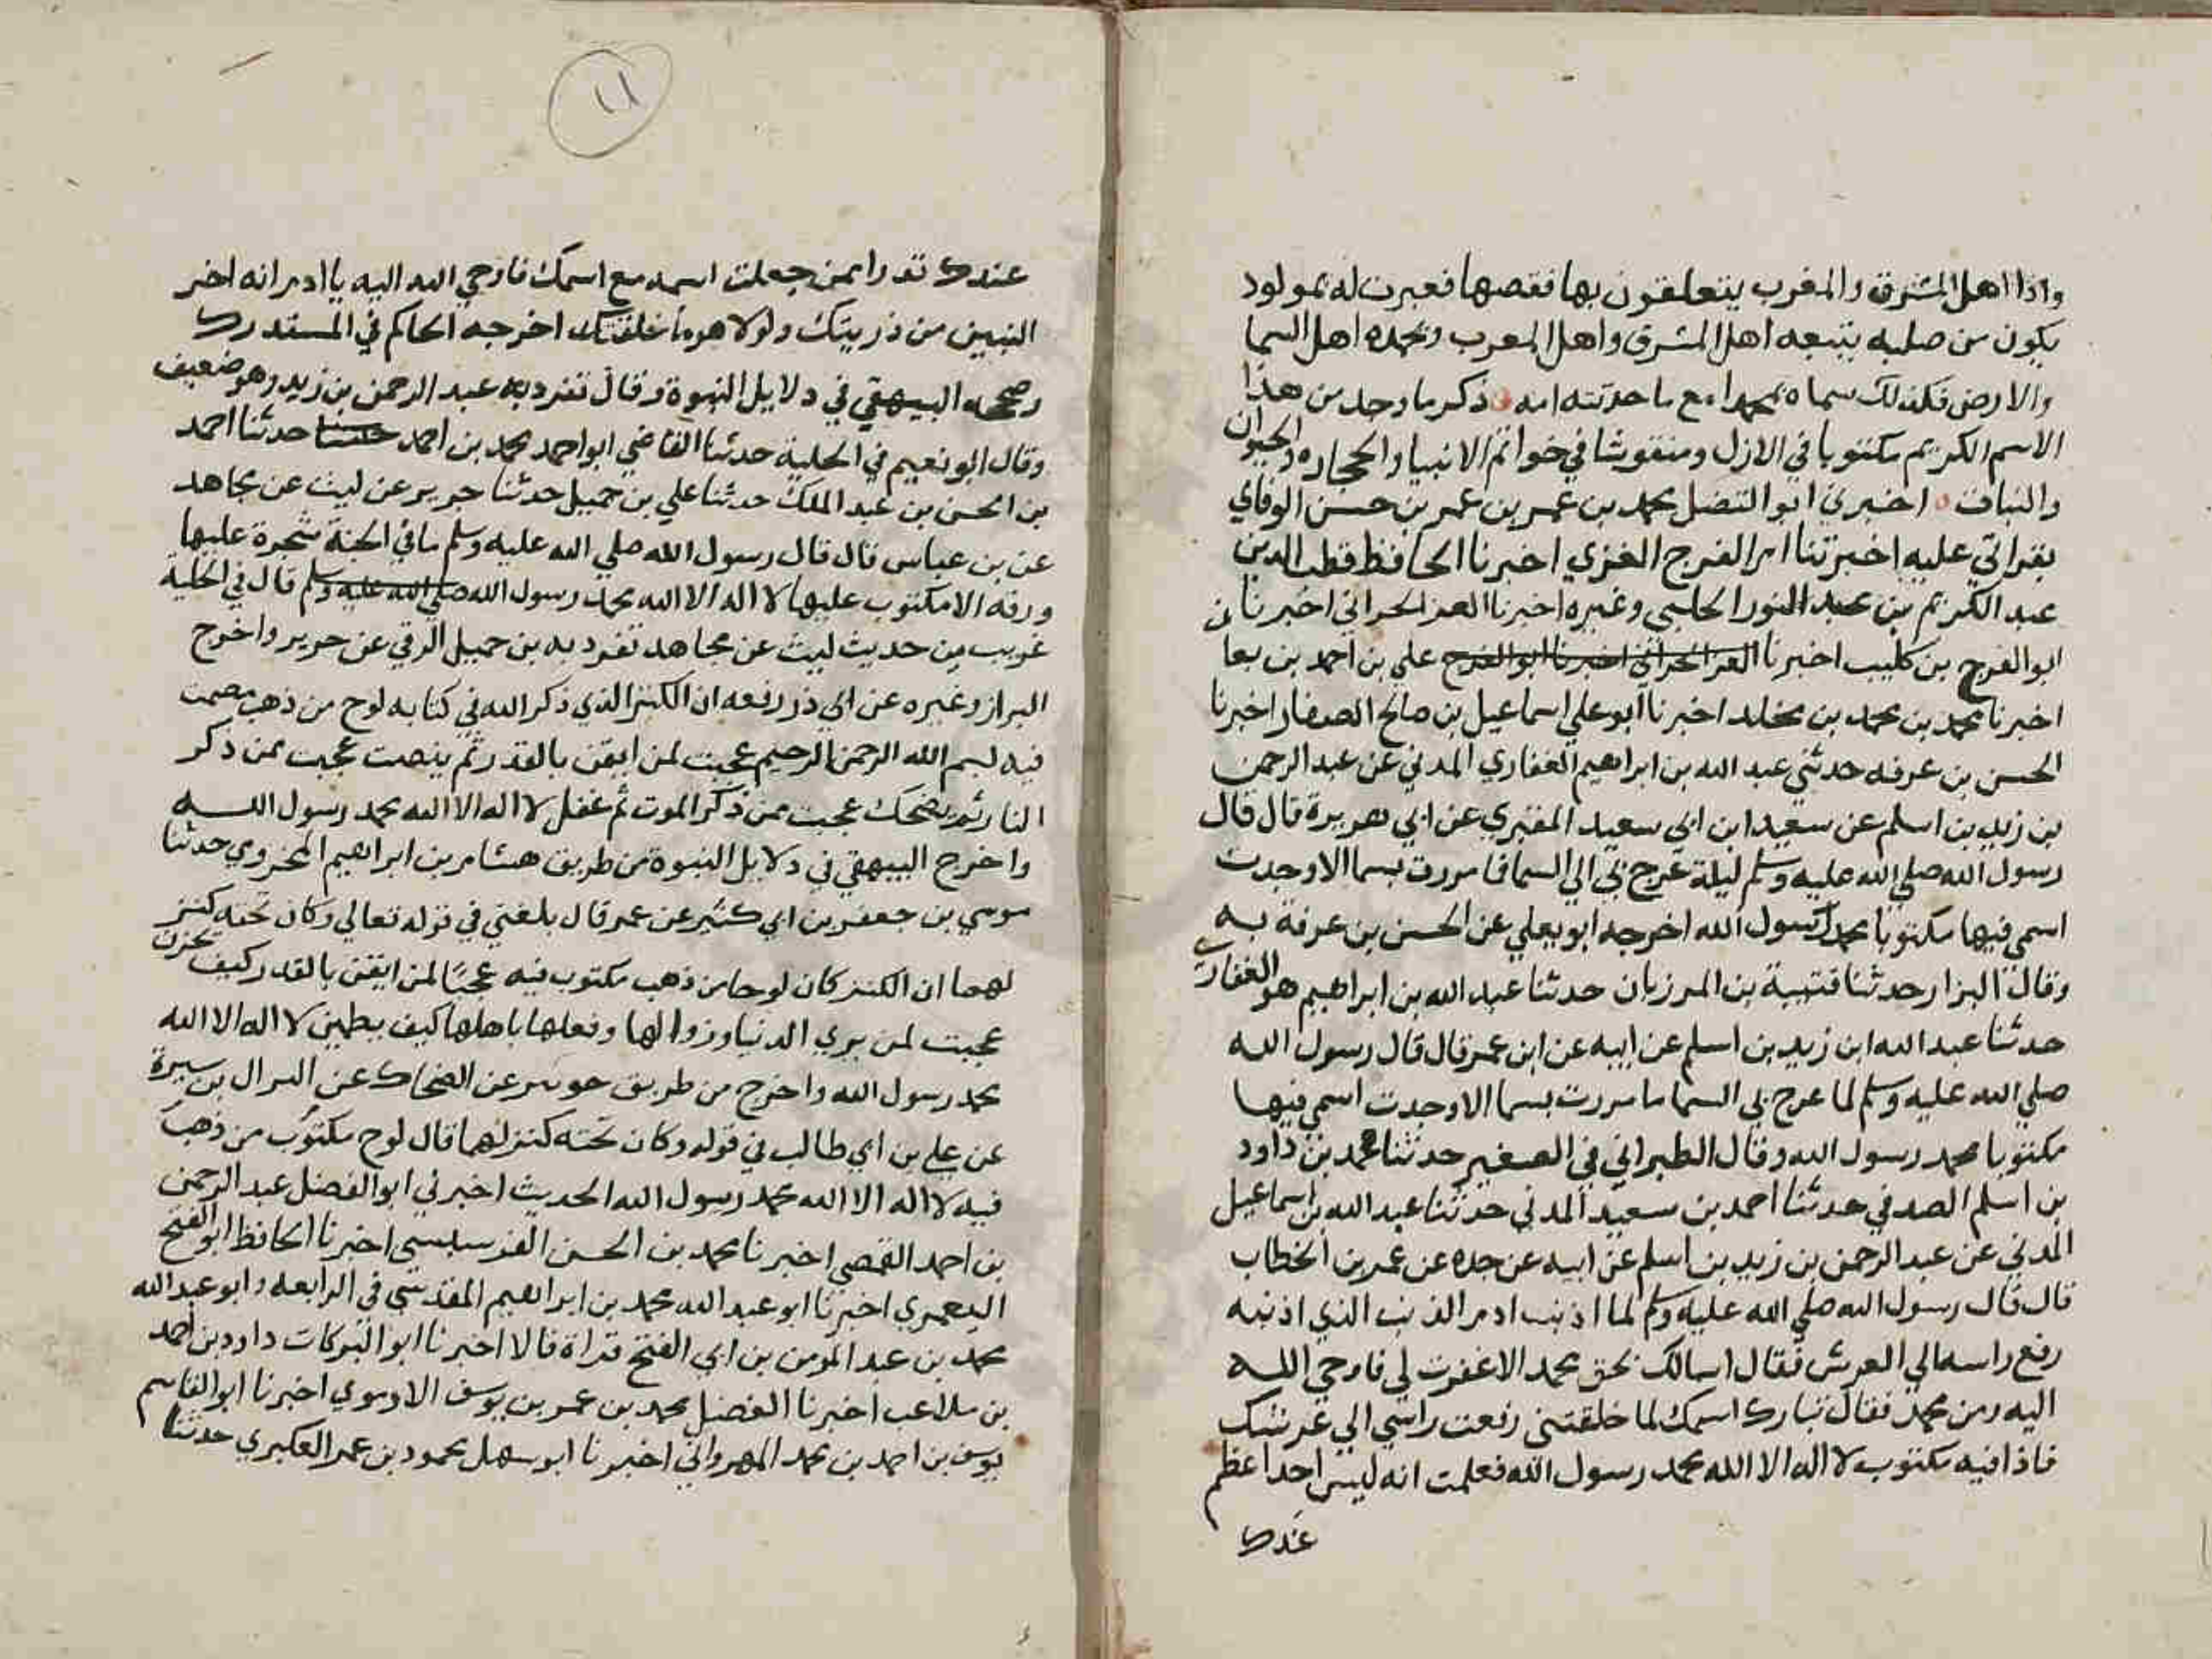 واذا اهل المشرق والمغرب يتعلقون بها فقصها فعبرت له بمولود
يكون من صلبه يتبعه اهل المشرق واهل المغرب ويحمده اهل السما
والارض فكذلك سماه محمدا مع ما حدثته امه ذكر ما وجد من هذا
الاسم الكريم مكتوبا في الازل ومنقوشا في خواتم الانبيا والحجاره والحيوان
والنبات اخبرني ابو الفضل محمد بن عمر بن عمر بن حسن الوفاي
بقراتي عليه اخبرتنا ام الفرج الغزي اخبرنا الحافظ قطب الدين
عبد الكريم بن عبد النور الحلبي وغيره اخبرنا العز الحراني اخبرنا
ابو الفرج بن كليب اخبرنا العز الحراني اخبرنا ابو الفرج علي بن احمد بن بها
اخبرنا محمد بن محمد بن مخلد اخبرنا ابو علي اسماعيل بن صالح الصفار اخبرنا
الحسن بن عرفه حدثني عبد الله بن ابراهيم الغفاري المدني عن عبد الرحمن
بن زيد بن اسلم عن سعيد ابن ابي سعيد المقبري عن ابي هريرة قال قال
رسول الله صلي الله عليه وسلم ليلة عرج بي الي السما فا مررت بسما الا وجدت
اسمي فيها مكتوبا محمد رسول الله اخرجه ابو يعلي عن الحسن بن عرفة به
وقال البزار حدثنا قتيبة بن المرزبان حدثنا عبد الله بن ابراهيم هو الغفاري
حدثنا عبد الله ابن زيد بن اسلم عن ابيه عن ابن عمر قال قال رسول الله
صلي الله عليه وسلم لما عرج بي السما ما مررت بسما الا وجدت اسمي فيها
مكتوبا محمد رسول الله وقال الطبراني في الصغير حدثنا محمد بن داود
بن اسلم الصدفي حدثنا احمد بن سعيد المدني حدثنا عبد الله بن اسماعيل
المدني عن عبد الرحمن بن زيد بن اسلم عن ابيه عن جده عن عمر بن الخطاب
قال قال رسول الله صلي الله عليه وسلم لما اذنب ادم الذنب الذي اذنبه
رفع راسه الي العرش فقال اسالك بحق محمد الا غفرت لي فاوحي الله
اليه ومن محمد فقال تبارك اسمك لما خلقتني رفعت راسي الي عرشك
فاذا فيه مكتوب لا اله الا الله محمد رسول الله فعلمت انه ليس احد اعظم
عندك
١١
عندك قدرا ممن جعلت اسمه مع اسمك فاوحي الله اليه يا ادم انه اخر
النبيين من ذريتك ولولا هو ما خلقتك اخرجه الحاكم في المستدرك
وصححه البيهقي في دلايل النبوة وقال تفرد به عبد الرحمن بن زيد وهو ضعيف
وقال ابو نعيم في الحلية حدثنا القاضي ابو احمد محمد بن احمد حدثنا حدثنا احمد
بن الحسن بن عبد الملك حدثنا علي بن جميل حدثنا جرير عن ليث عن مجاهد
عن بن عباس قال قال رسول الله صلي الله عليه وسلم ما في الجنة شجرة عليها
ورقه الا مكتوب عليها لا اله الا الله محمد رسول الله صلي الله عليه وسلم قال في الحلية
غريب من حديث ليث عن مجاهد تفرد به بن جميل الرقي عن جرير واخرج
البزار وغيره عن ابي ذر رفعه ان الكنز الذي ذكر الله في كتابه لوح من ذهب مصمت
فيه بسم الله الرحمن الرحيم عجبت لمن ايقن بالقدر ثم ينصب عجبت لمن ذكر
النار ثم يضحك عجبت ممن ذكر الموت ثم غفل لا اله الا الله محمد رسول الله
واخرج البيهقي في دلايل النبوة من طريق هشام بن ابراهيم المخزومي حدثنا
موسي بن جعفر بن ابي كثير عن عمر قال بلغني في قوله تعالي وكان تحته كنز
لهما ان الكنز كان لوحا من ذهب مكتوب فيه عجبا لمن ايقن بالقدر كيف يحزن
عجبت لمن يري الدنيا وزوالها وفعلها باهلها كيف يطمين لا اله الا الله
محمد رسول الله واخرج من طريق جويبر عن الضحاك عن النزال بن سبرة
عن علي بن ابي طالب في قوله وكان تحته كنز لهما قال لوح مكتوب من ذهب
فيه لا اله الا الله محمد رسول الله الحديث اخبرني ابو الفضل عبد الرحمن
بن احمد القمصي اخبرنا محمد بن الحسن الفرسيسي اخبرنا الحافظ ابو الفتح
اليعمري اخبرنا ابو عبد الله محمد بن ابراهيم المقدسي في الرابعه وابو عبد الله
محمد بن عبد المومن بن ابي الفتح قراة قالا اخبرنا ابو البركات داود بن احمد
بن ملاعب اخبرنا الفضل محمد بن عمر بن يوسف الارموي اخبرنا ابو القاسم
يوسف بن احمد بن محمد المهرواني اخبرنا ابو سهل محمود بن عمر العكبري حدثنا